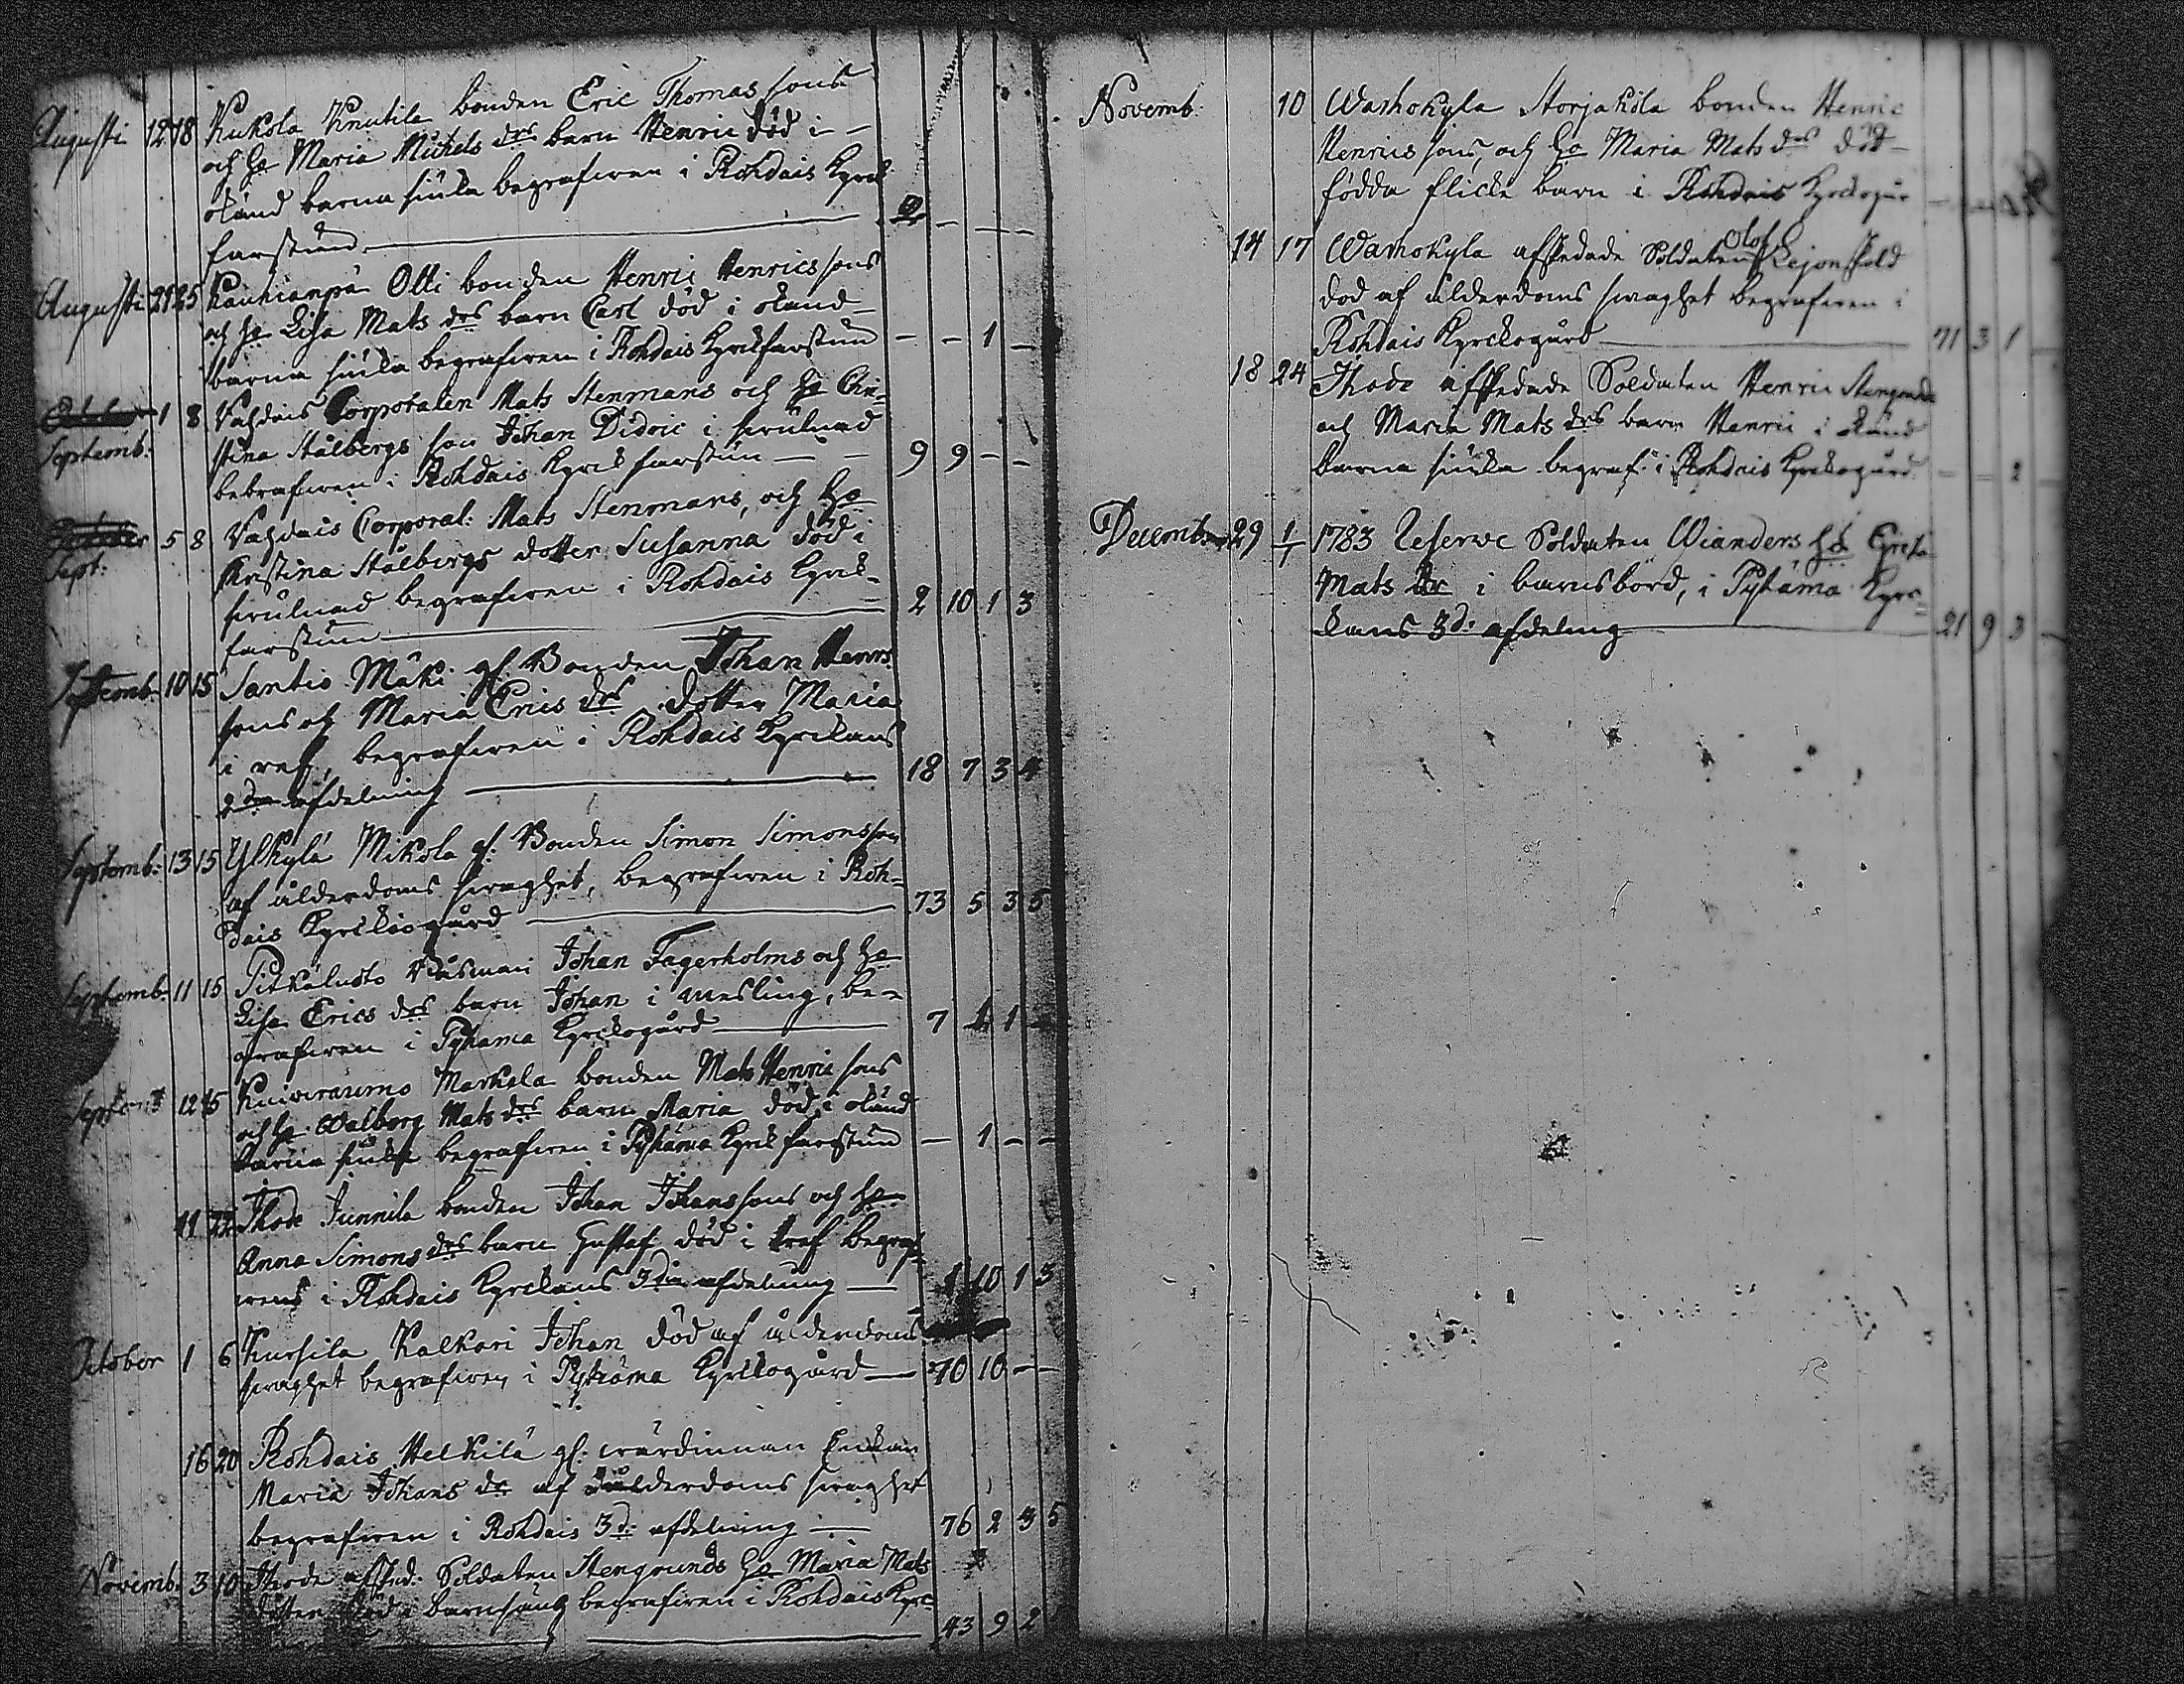 Augusti 12 18 Kukola Knutila bonden Eric Thomas sons
och ho Maria Michels drs barn Henric död i
okänd barna siuka begrafwen i Rohdais Kyrck
farstun
Augusti 21 25 Kauhianpä Otti bonden Henric Henrics sons
och ho Lisa Mats drs barn Carl död i okänd
barna siuka begrafwen i Rohdais Kyrckfarstun - - 1 -
1 8 Vahdais Corporalen Mats Stenmans och ho Chri-
Septemb: stina Stålbergs son Johan Didric i
bebrafwen i Rohdais Kyrck farstun 9 9 - -
5 8 Vahdais Corporal: Mats Stenmans, och ho
Sept: Kristina Stålbergs dotter Susanna död i
begrafwen i Rohdais Kyrck-
farstun 2 10 1 3
Septemb: 10 15 Santio Mäki gl. Bonden Johan Henrics
sons och Maria Erics drs dotter Maria
i ref, begrafwen i Rohdais Kyrckans
2dra afdelning 18 7 3 4
Septemb: 13 15 Ylikylä Mikola gl: Bonden Simon Simonsson
af ålderdoms swaghet, begrafwen i Roh-
dais Kyrckiogård 73 5 3 5
Septemb: 11 15 Pitkäluoto Johan Fagerholms och ho
Lisa Erics drs barn Johan i mesling, be-
grafwen i Pyhäma Kyrckogård 7 1 1 -
12 15 Kuivraumo Markula bonden Mats Henric sons
och ho Walborg Mats drs barn Maria död i okänd
barna siuka begrafwen i Pyhäma Kyrck farstun - 1 - -
11 22 Ihode Junnila bonden Johan Johans sons och ho
Anna Simons drs barn Gustaf, död i ref begraf-
wens i Rohdais Kyrckans 3die afdelning 1 10 1 3
October 1 6 Kursila Kalkari Johan död af ålderdoms
swaghet begrafwen i Pyhäma Kyrckogård 70 10 - -
16 20 Rohdais Helkilä gl: wärdinnan Enckan
Maria Johans dr af ålderdoms swaghet
begrafwen i Rohdais 3d: afdelning 76 2 3 5
Novemb: 3 10 Ihode afsked: Soldaten Stengrunds ho Maria Mats
dotter död i barnsäng begrafwen i Rohdais Kyrc-
43 9 2
Novemb: 10 Warhokyla Storjakola bonden Henric
Henrics sons, och ho Maria Mats drs död-
födda flicke barn i Rohdais Kyrckogår
14 17 Warhokyla afskedade Soldaten Olof Lejonsköld
död af ålderdoms swaghet begrafwen i
Rohdais Kyrckogård 71 3 1
18 24 Ihode afskedade Soldaten Henric Stengrunds
och Maria Mats drs barn Henric i okänd
barna siuka begraf: i Rohdais Kyrckogård - - 2 -
Decemb: 29 1/1 1783 Reserve Soldaten Wianders ho Greta
Mats dr i barnsbörd, i Pyhäma Kyrc-
kans 3d: afdelning 21 9 3